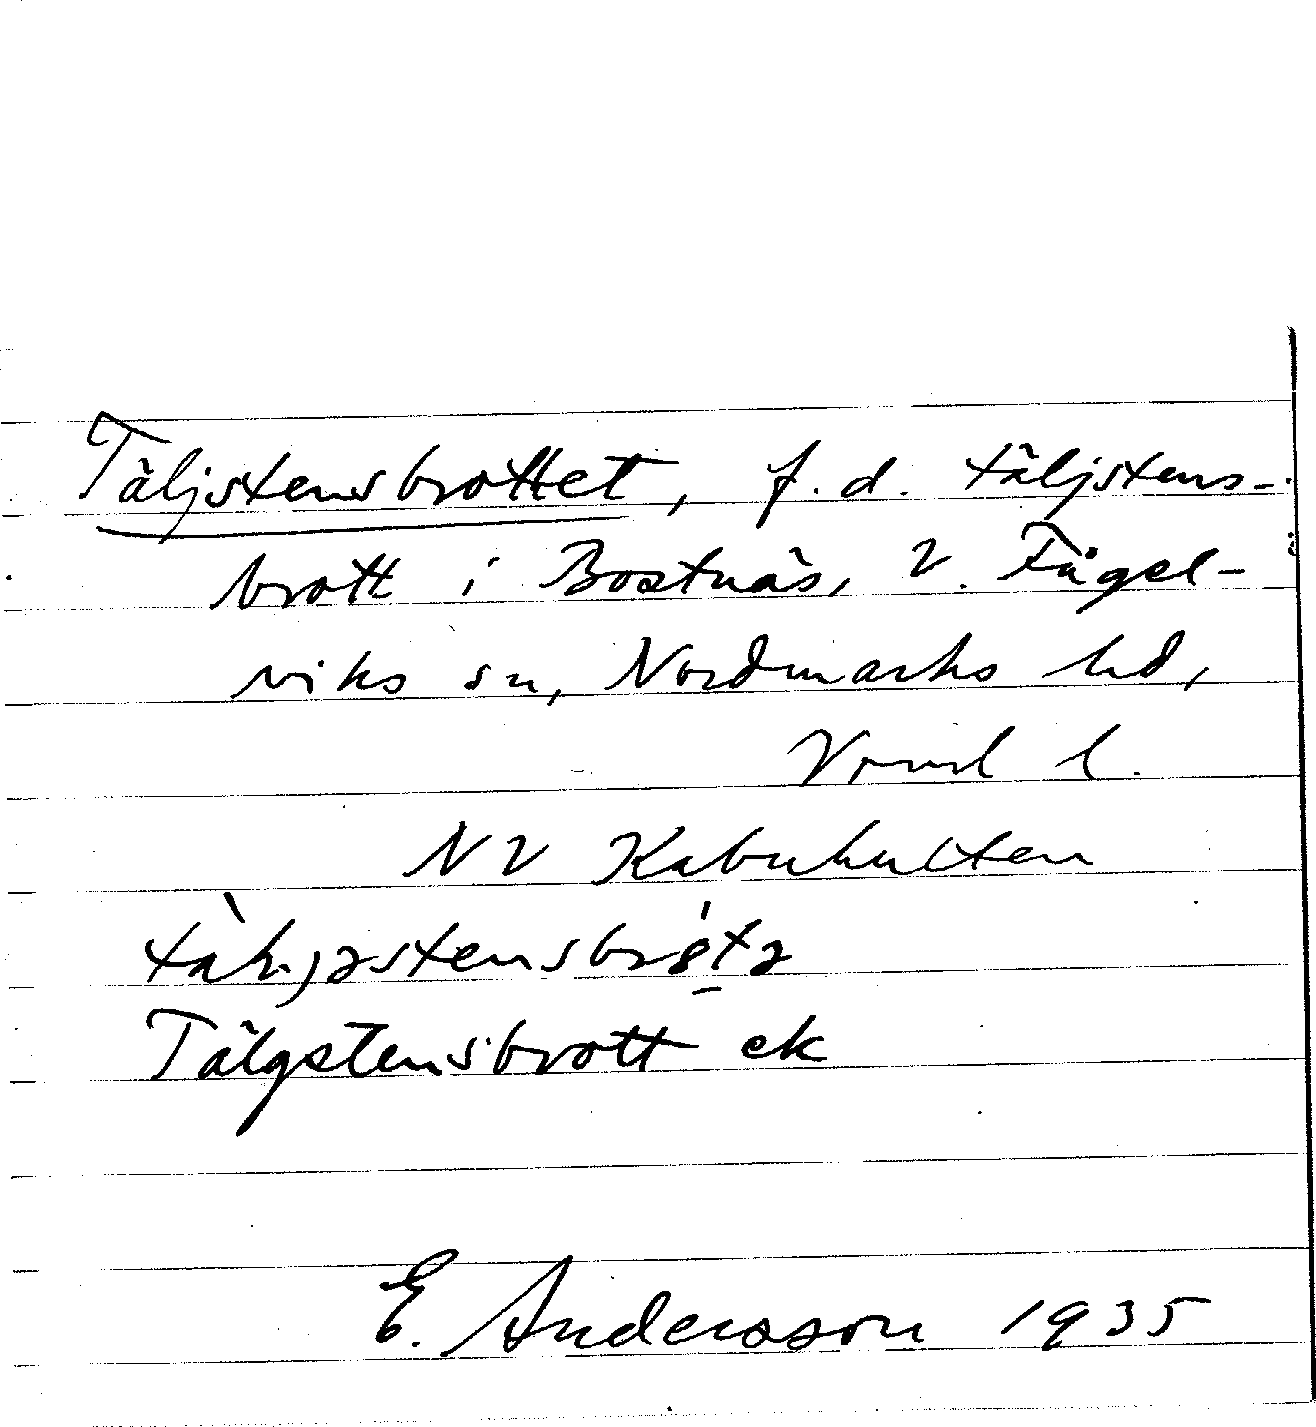 Täljstensbrottet, f.d. täljstens-
brott i Bostnäs, V. Fågel-
viks sn, Nordmarks hd,
Vrml l.
NV Kabuhulten
Tälgstensbrott ek
E. Andersson 1935